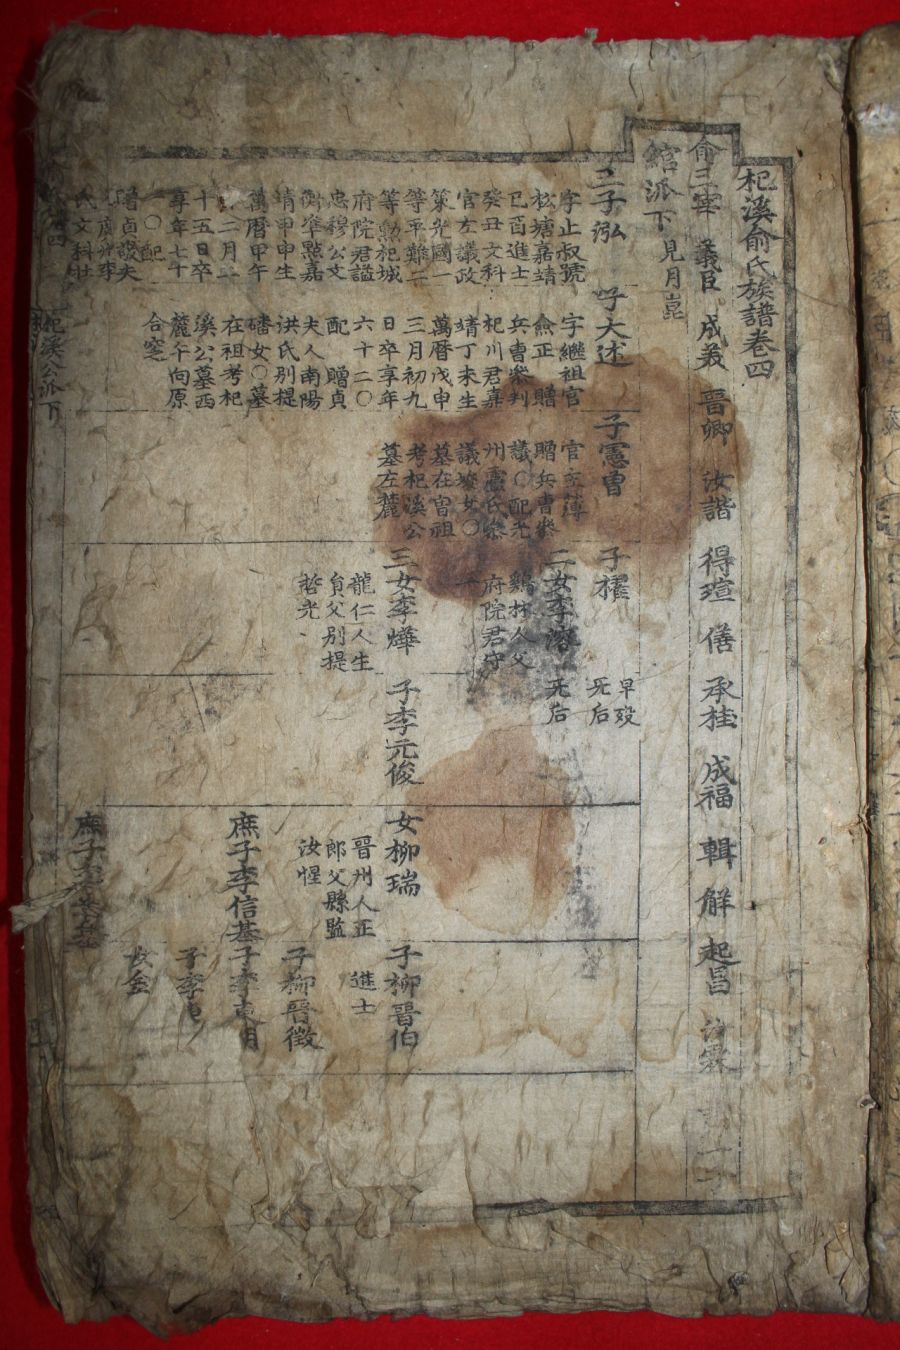 杞溪俞氏族譜卷四
俞三宰 義臣 成義 晋卿 汝諧 得瑄 僐 承桂 成福 輯 解 起昌 汝霖
綰派下 見月崑
二子泓
字止叔號
松塘嘉靖
己酉進士
癸丑文科
官左議政
策光國一
等平難二
等勳杞城
府院君謚
忠穆公文
衡準點嘉
靖甲申生
萬曆甲午
二月二
十五日卒
享年七十
一〇配
贈貞敬夫
人廣州李
氏文科牡
子大述
字繼祖官
僉正贈
兵曹參判
杞川君嘉
靖丁未生
萬曆戊申
三月初九
日卒享年
六十二〇
配贈貞
夫人南陽
洪氏別提
磻女〇墓
在祖考杞
溪公墓西
麓午向原
合窆
子憲曾
官主簿
贈兵曹參
議〇配光
州盧氏參
議女〇
墓在官祖
考杞溪公
墓左麓
子櫂
早歿
死后
二女李
死后
鷄林人父
府院君守
三女李燁
龍仁人生
員父別提
哲光
子李元俊
女柳瑞
晋州人正
郎父縣監
汝惺
子柳晋伯
進士
子柳晋徵
庶子李信基
子李
子李
女金
庶子李基
杞溪公派下